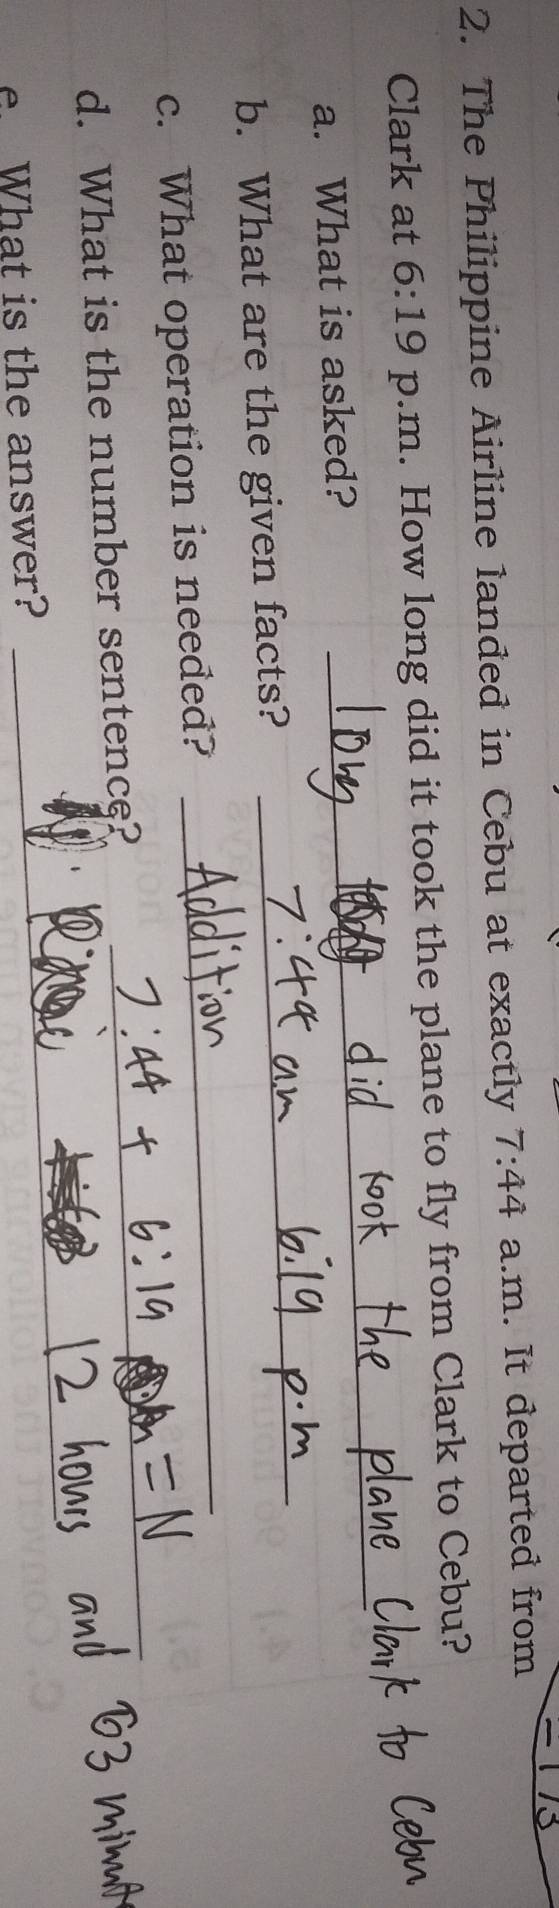 2. The Philippine Airline landed in Cebu at exactly 7:44 a.m. It departed from
Clark at 6:19 p.m. How long did it took the plane to fly from Clark to Cebu?
a. What is asked? long did took the plane Clark to Cebu
b. What are the given facts? 7:44 am 6:19 p.m
c. What operation is needed? Addition
d. What is the number sentence? 7:44 + 6:19 = N
e. What is the answer? 12 hours and 63 minut